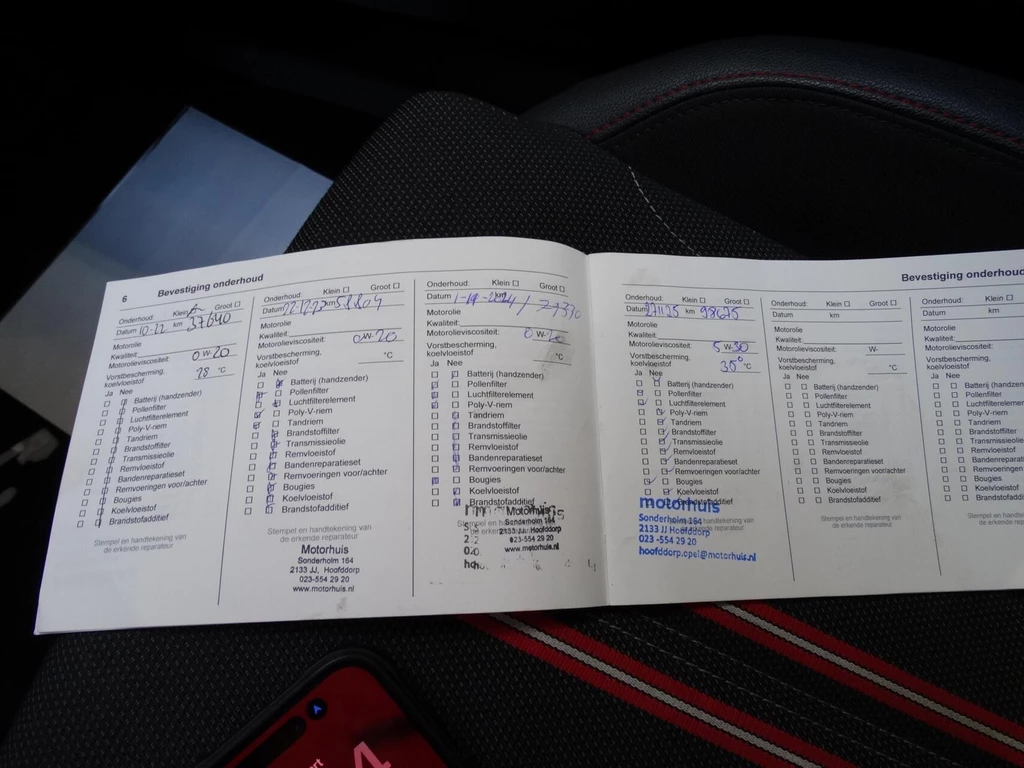 6 Bevestiging onderhoud
Onderhoud: Klein Groot
Datum 10-22 km 37640
Motorolie
Kwaliteit:
Motorolieviscositeit: 0 W-20
Vorstbescherming, koelvloeistof 28 °C
Ja Nee
Batterij (handzender)
Pollenfilter
Luchtfilterelement
Poly-V-riem
Tandriem
Brandstoffilter
Transmissieolie
Remvloeistof
Bandenreparatieset
Remvoeringen voor/achter
Bougies
Koelvloeistof
Brandstofadditief
Stempel en handtekening van
de erkende reparateur
Onderhoud: Klein Groot
Datum km 58804
Motorolie
Kwaliteit:
Motorolieviscositeit: 0W-20
Vorstbescherming, koelvloeistof °C
Ja Nee
Batterij (handzender)
Pollenfilter
Luchtfilterelement
Poly-V-riem
Tandriem
Brandstoffilter
Transmissieolie
Remvloeistof
Bandenreparatieset
Remvoeringen voor/achter
Bougies
Koelvloeistof
Brandstofadditief
Stempel en handtekening van
de erkende reparateur
Motorhuis
Sonderholm 164
2133 JJ, Hoofddorp
023-554 29 20
www.motorhuis.nl
Onderhoud: Klein Groot
Datum km
Motorolie
Kwaliteit:
Motorolieviscositeit: 0 W-20
Vorstbescherming, koelvloeistof °C
Ja Nee
Batterij (handzender)
Pollenfilter
Luchtfilterelement
Poly-V-riem
Tandriem
Brandstoffilter
Transmissieolie
Remvloeistof
Bandenreparatieset
Remvoeringen voor/achter
Bougies
Koelvloeistof
Brandstofadditief
Motorhuis
Sonderholm 164
2133 JJ, Hoofddorp
023-554 29 20
www.motorhuis.nl
Bevestiging onderhoud
Onderhoud: Klein Groot
Datum km 98675
Motorolie
Kwaliteit:
Motorolieviscositeit: 5 W-30
Vorstbescherming, koelvloeistof 30° °C
Ja Nee
Batterij (handzender)
Pollenfilter
Luchtfilterelement
Poly-V-riem
Tandriem
Brandstoffilter
Transmissieolie
Remvloeistof
Bandenreparatieset
Remvoeringen voor/achter
Bougies
Koelvloeistof
Brandstofadditief
motorhuis
Sonderholm 164
2133 JJ Hoofddorp
023 -554 29 20
hoofddorp.opel@motorhuis.nl
Onderhoud: Klein Groot
Datum km
Motorolie
Kwaliteit:
Motorolieviscositeit: W-
Vorstbescherming, koelvloeistof °C
Ja Nee
Batterij (handzender)
Pollenfilter
Luchtfilterelement
Poly-V-riem
Tandriem
Brandstoffilter
Transmissieolie
Remvloeistof
Bandenreparatieset
Remvoeringen voor/achter
Bougies
Koelvloeistof
Brandstofadditief
Stempel en handtekening van
de erkende reparateur
Onderhoud: Klein
Datum km
Motorolie
Kwaliteit:
Motorolieviscositeit:
Vorstbescherming, koelvloeistof
Ja Nee
Batterij (handzender)
Pollenfilter
Luchtfilterelement
Poly-V-riem
Tandriem
Brandstoffilter
Transmissieolie
Remvloeistof
Bandenreparatieset
Bougies
Koelvloeistof
Brandstofadditief
4